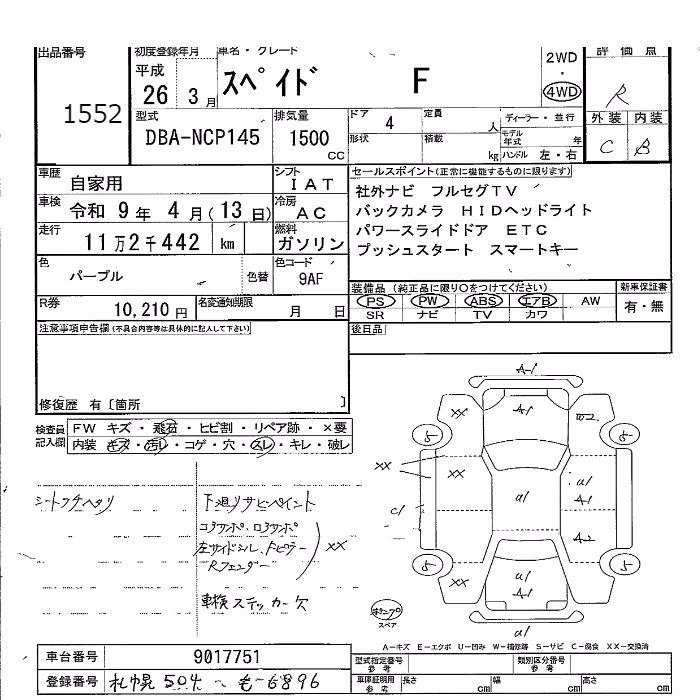 出品番号 1552
初度登録年月 平成 26 3月
車名・グレード スペイド F
2WD ・ 4WD
評価点 R
外装 内装
C B
型式 DBA-NCP145
排気量 1500 CC
ドア 4
定員 人
形状
積載 kg
ディーラー・並行
モデル年式 年
ハンドル 左・右
車歴 自家用
シフト IAT
車検 令和 9年 4月(13日)
冷房 AC
走行 11万2千442 km
燃料 ガソリン
色 パープル 色替
色コード 9AF
R券 10,210円
名変通知期限 月 日
セールスポイント(正常に機能するものに限ります)
社外ナビ フルセグTV
バックカメラ HIDヘッドライト
パワースライドドア ETC
プッシュスタート スマートキー
装備品 (純正品に限り○をつけてください)
PS PW ABS エアB AW
SR ナビ TV カワ
新車保証書
有・無
後日品
注意事項申告欄(不具合内容等は具体的に記入して下さい)
修復歴 有〔箇所 〕
検査員記入欄
FW キズ・飛石・ヒビ割・リペア跡・×要
内装 キズ・汚レ・コゲ・穴・スレ・キレ・破レ
シートフチヘタリ
下廻りサビペイント
左サイドシル、
Rフェンダー
XX
車検ステッカー欠
A-1
XX
A-1
5
5
XX
XX
a1
a1
A-1
C1
A-2
5
5
XX
a1
A-1
a1
スペア
A-キズ E-エクボ U-凹み W-補修跡 S-サビ C-腐食 XX-交換済
車台番号 9017751
登録番号 札幌 504 も-6896
型式指定番号 参考
類別区分番号 参考
車庫証明用 参考
長さ cm
幅 cm
高さ cm